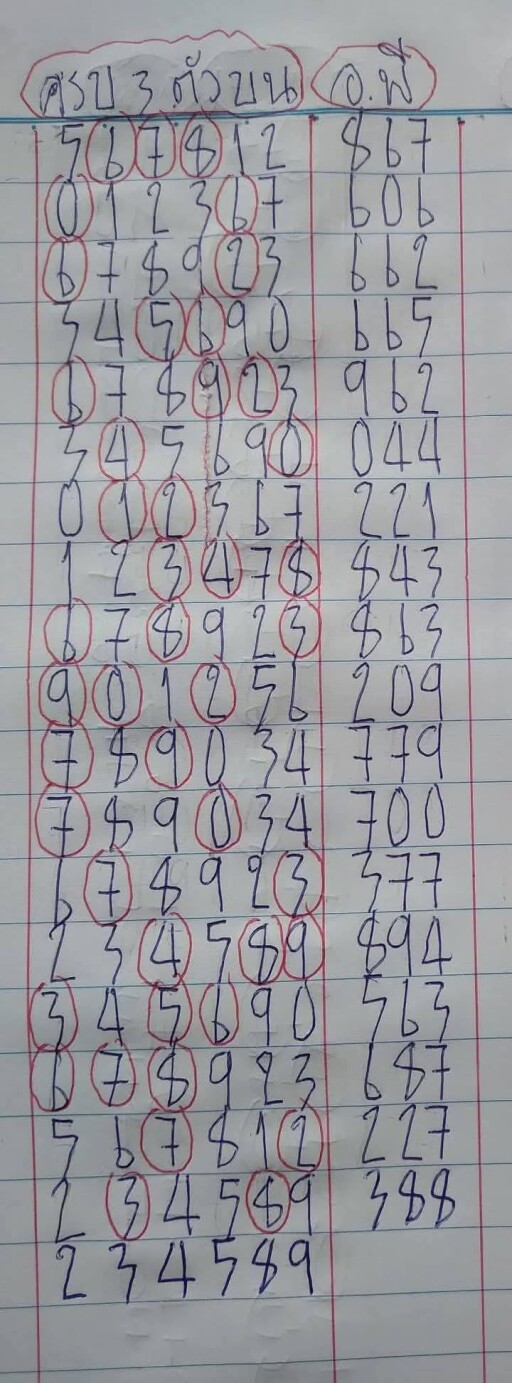 ครบ 3 ตัวบน อ.พี
5 6 7 8 1 2 867
0 1 2 3 6 7 606
6 7 8 9 2 3 662
3 4 5 6 9 0 665
6 7 8 9 2 3 962
3 4 5 6 9 0 044
0 1 2 3 6 7 221
1 2 3 4 7 8 843
6 7 8 9 2 3 863
9 0 1 2 5 6 209
7 8 9 0 3 4 779
7 8 9 0 3 4 700
6 7 8 9 2 3 377
2 3 4 5 8 9 894
3 4 5 6 9 0 563
6 7 8 9 2 3 687
5 6 7 8 1 2 227
2 3 4 5 8 9 388
2 3 4 5 8 9